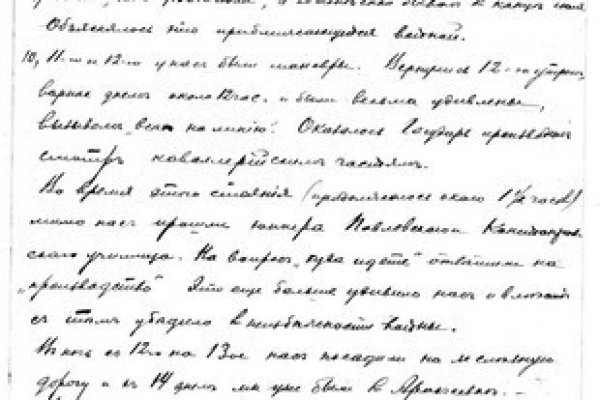 Объяснялось это приближающейся войной.
10, 11-го и 12-го у нас были маневры. Вернулись 12-го утром,
вернее днем около 12 час. и были весьма удивлены,
вызовом "всех на линию". Оказалось Государь производил
смотр кавалерийским частям.
Во время этого стояния (продолжалось около 1½ часов)
мимо нас прошли юнкера Павловского
училища. На вопрос "куда идете" ответили на
"производство". Это еще больше удивило нас и
с тем убедило в неизбежности войны.
В ночь с 12го на 13ое нас посадили на железную
дорогу и к 14 днем мы уже были в